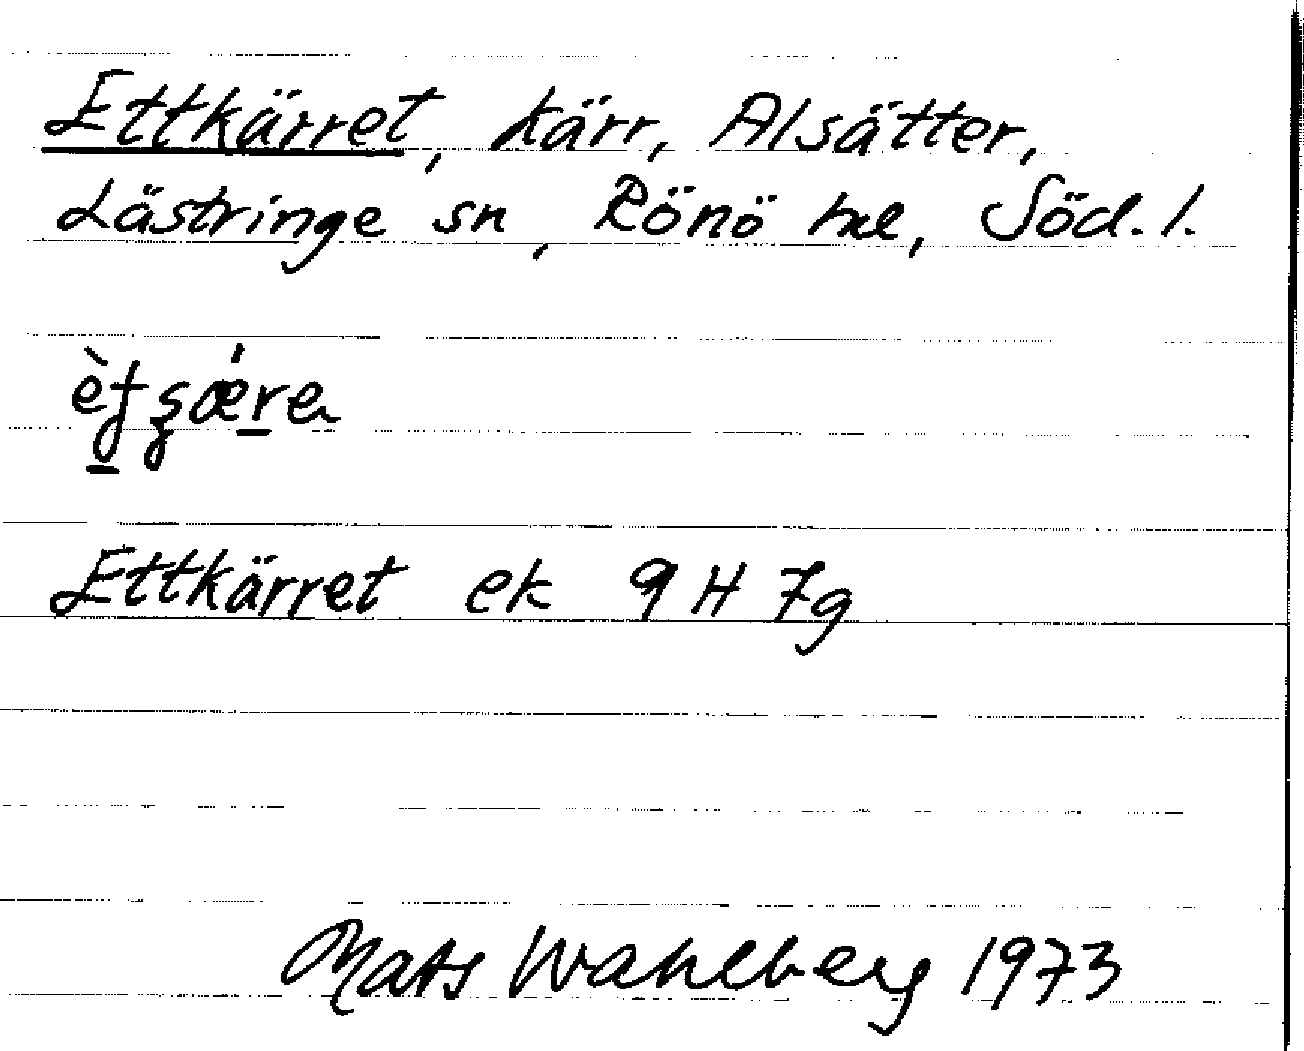 Ettkärret, kärr, Alsätter,
Lästringe sn, Rönö hd, Söd. l.
Ettkärret ek 9 H 7g
Mats Wahlberg 1973